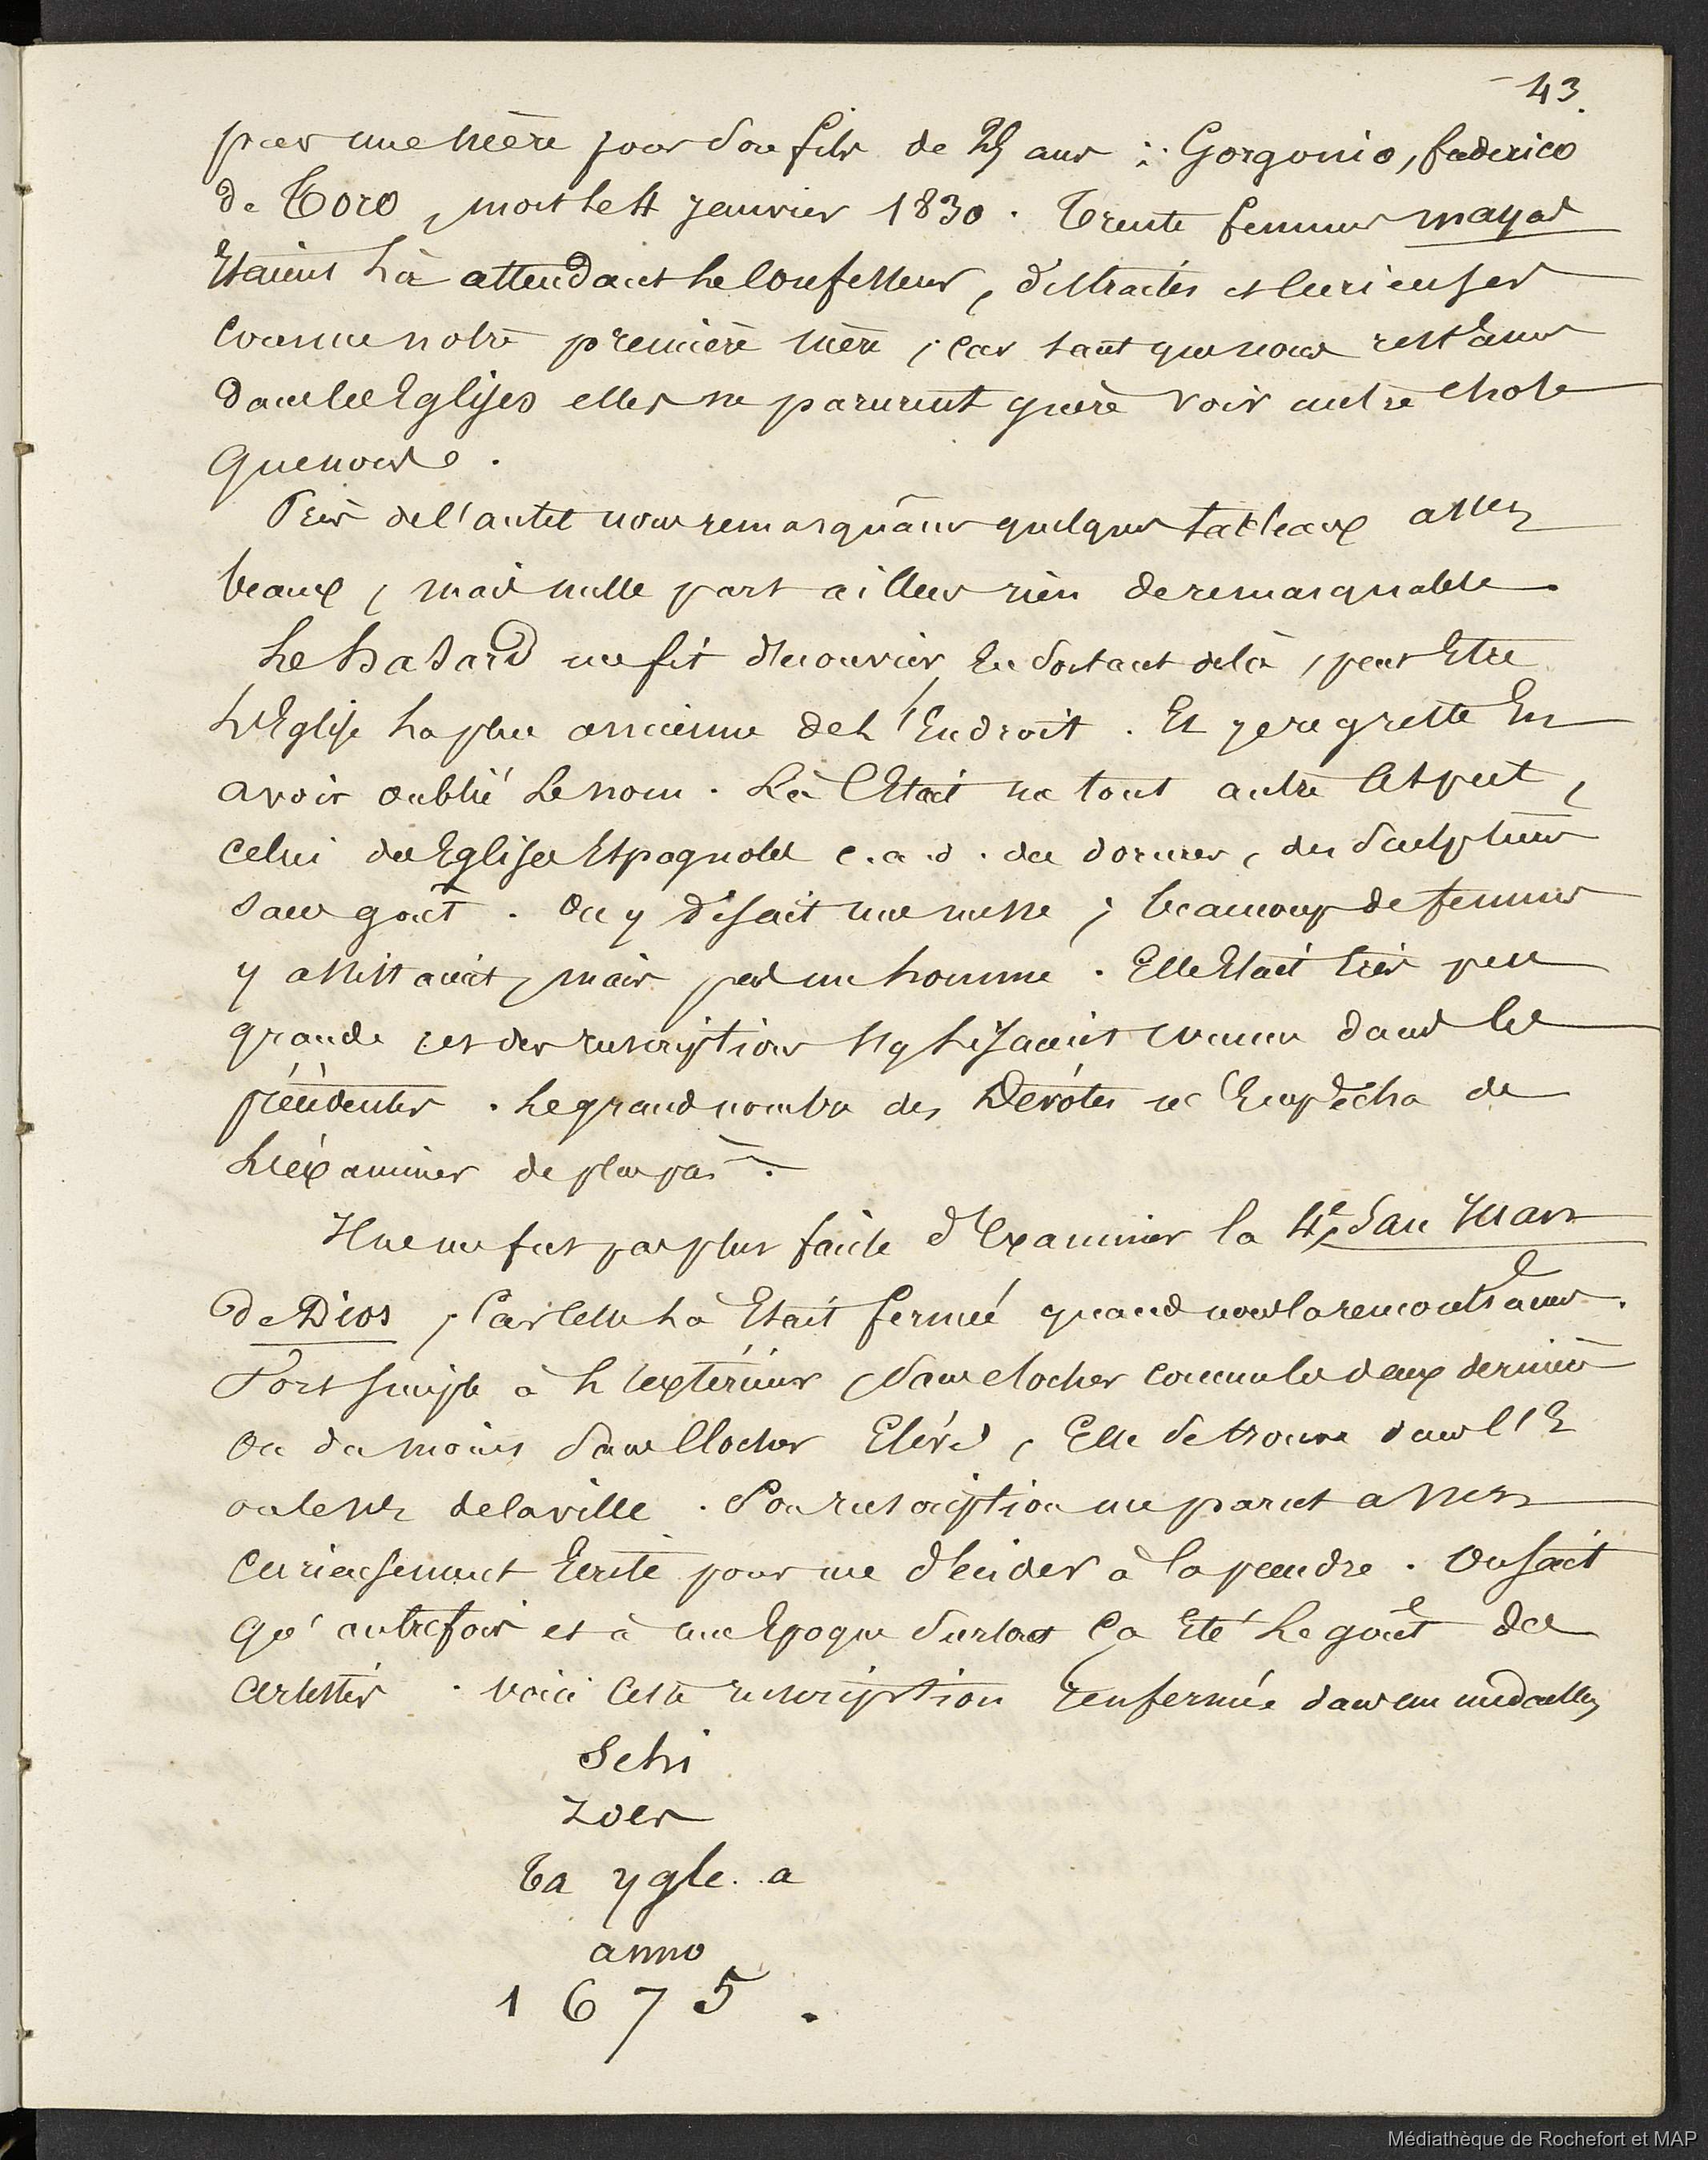 43.
par une mère pour son fils de 25 ans : Gorgonio, federico
de Toro, mort le 4 janvier 1830. Trente femmes mayas
Etaient là attendant le Confesseur, distraites et Curieuses
Comme notre première mère ; Car tant que nous restâmes
dans les Eglises elles ne parurent guère voir autre Chose
que nous.
Près de l'autel nous remarquâmes quelques tableaux assez
beaux, mais nulle part ailleurs rien de remarquable.
Le hasard me fit découvrir, En sortant de là, peut Etre
L'Eglise La plus ancienne de L'Endroit. Et je regrette En
avoir oublié Le nom. Là C'Etait un tout autre Aspect,
Celui des Eglises Espagnoles c.a.d. des dorures, des Sculptures
sans goût. On y disait une messe ; beaucoup de femmes
y assistaient, mais pas un homme. Elle Etait très peu
grande et des inscriptions s'y lisaient comme dans les
précédentes. Le grand nombre des Dévotes m'Empêcha de
L'éxaminer de plus près.
Il ne me fut pas plus facile d'Examiner la 4e, San Juan
de Dios, Car Celle Là Etait fermée quand nous la rencontrâmes.
Fort simple à L'extérieur, Sans clocher comme les deux dernières
Ou du moins Sans Clocher Elevé, Elle Se trouve dans l'E
ou le de la ville. Son inscription me parut assez
Curieusement Ecrite pour me décider à la prendre. On sait
qu'autrefois et à une Epoque Surtout Ça Eté Le goût des
artistes. Voici Cette inscription renfermée dans un médaillon
Sehi
zoes
Ta ygle..a
anno
1675.
Médiathèque de Rochefort et MAP